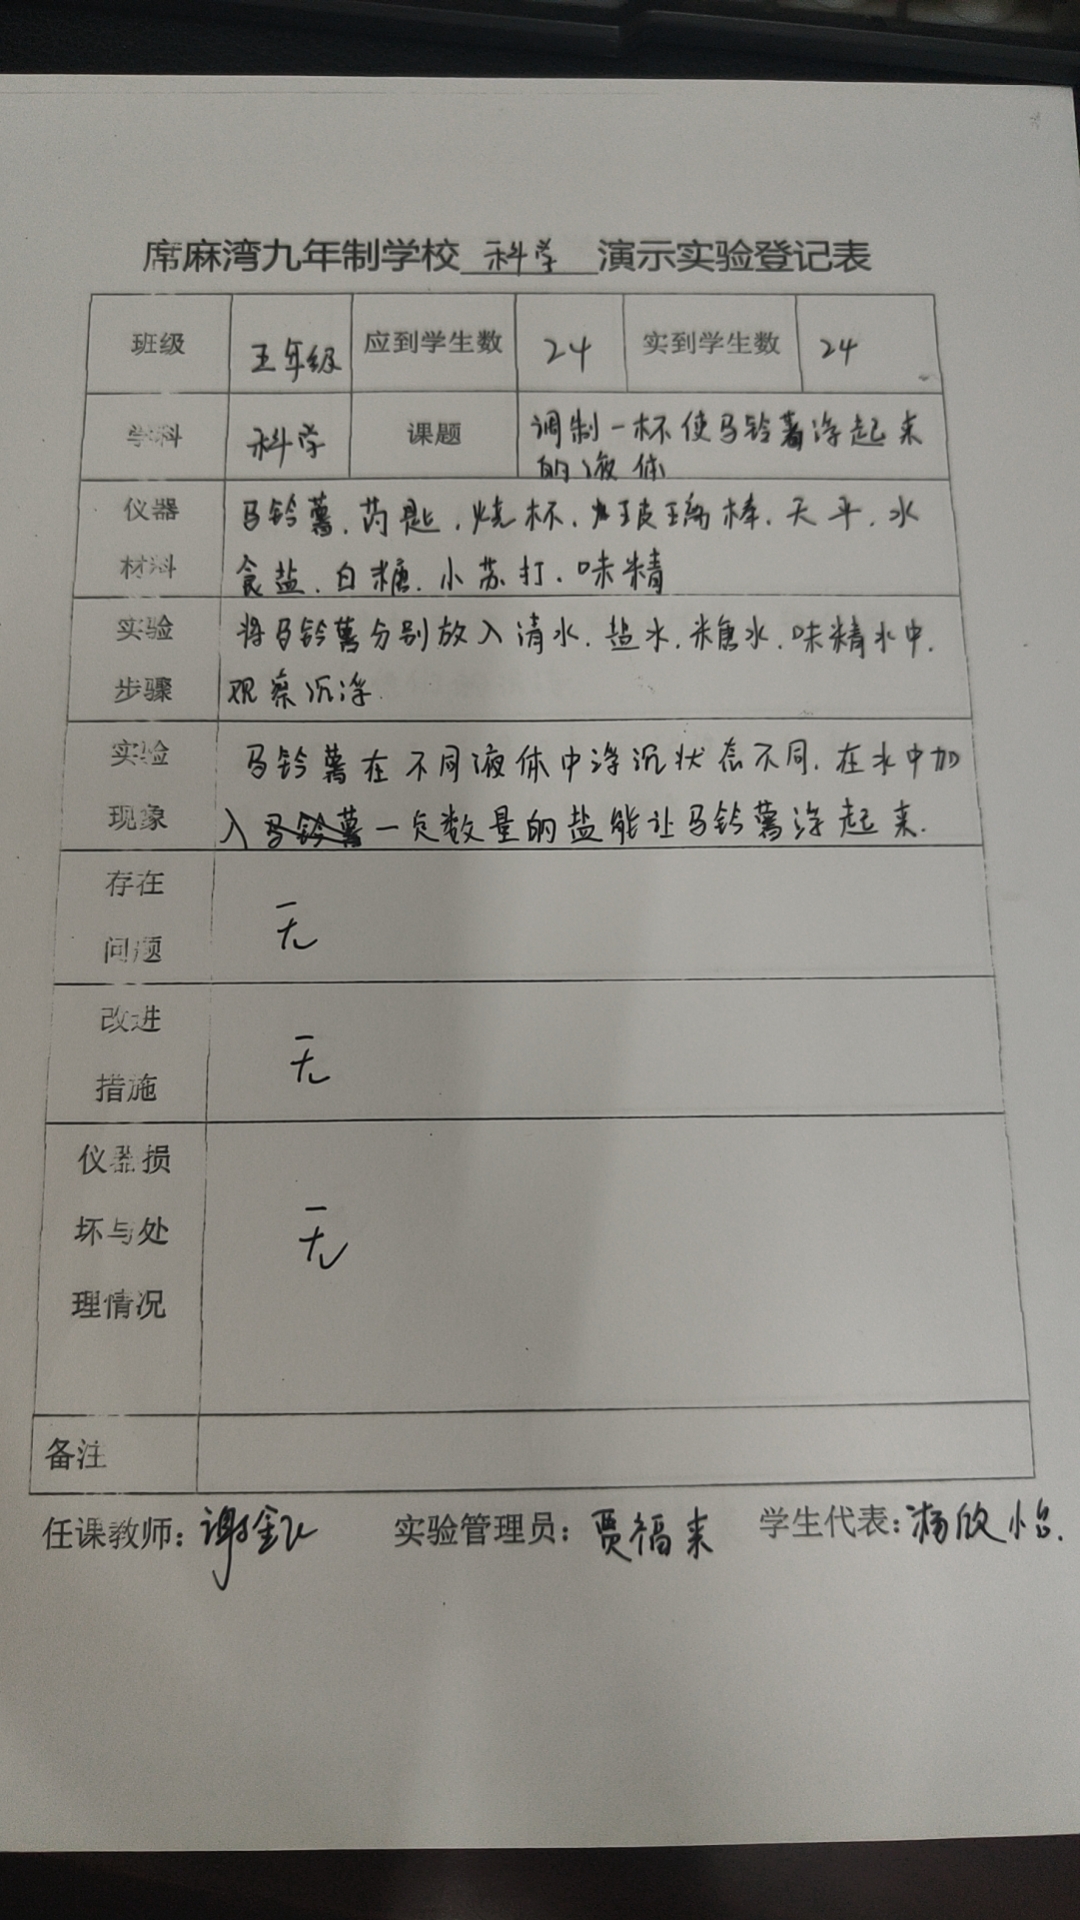 席麻湾九年制学校 科学 演示实验登记表
班级 五年级 应到学生数 24 实到学生数 24
学科 科学 课题 调制一杯使马铃薯浮起来
的液体
仪器 马铃薯、药匙、烧杯、玻璃棒、天平、水
材料 食盐、白糖、小苏打、味精
实验 将马铃薯分别放入清水、盐水、糖水、味精水中,
步骤 观察沉浮.
实验 马铃薯在不同液体中浮沉状态不同,在水中加
现象 入马铃薯一定数量的盐能让马铃薯浮起来.
存在
问题 无
改进
措施 无
仪器损
坏与处 无
理情况
备注
任课教师: 谢 实验管理员: 贾福来 学生代表: 杨欣怡.